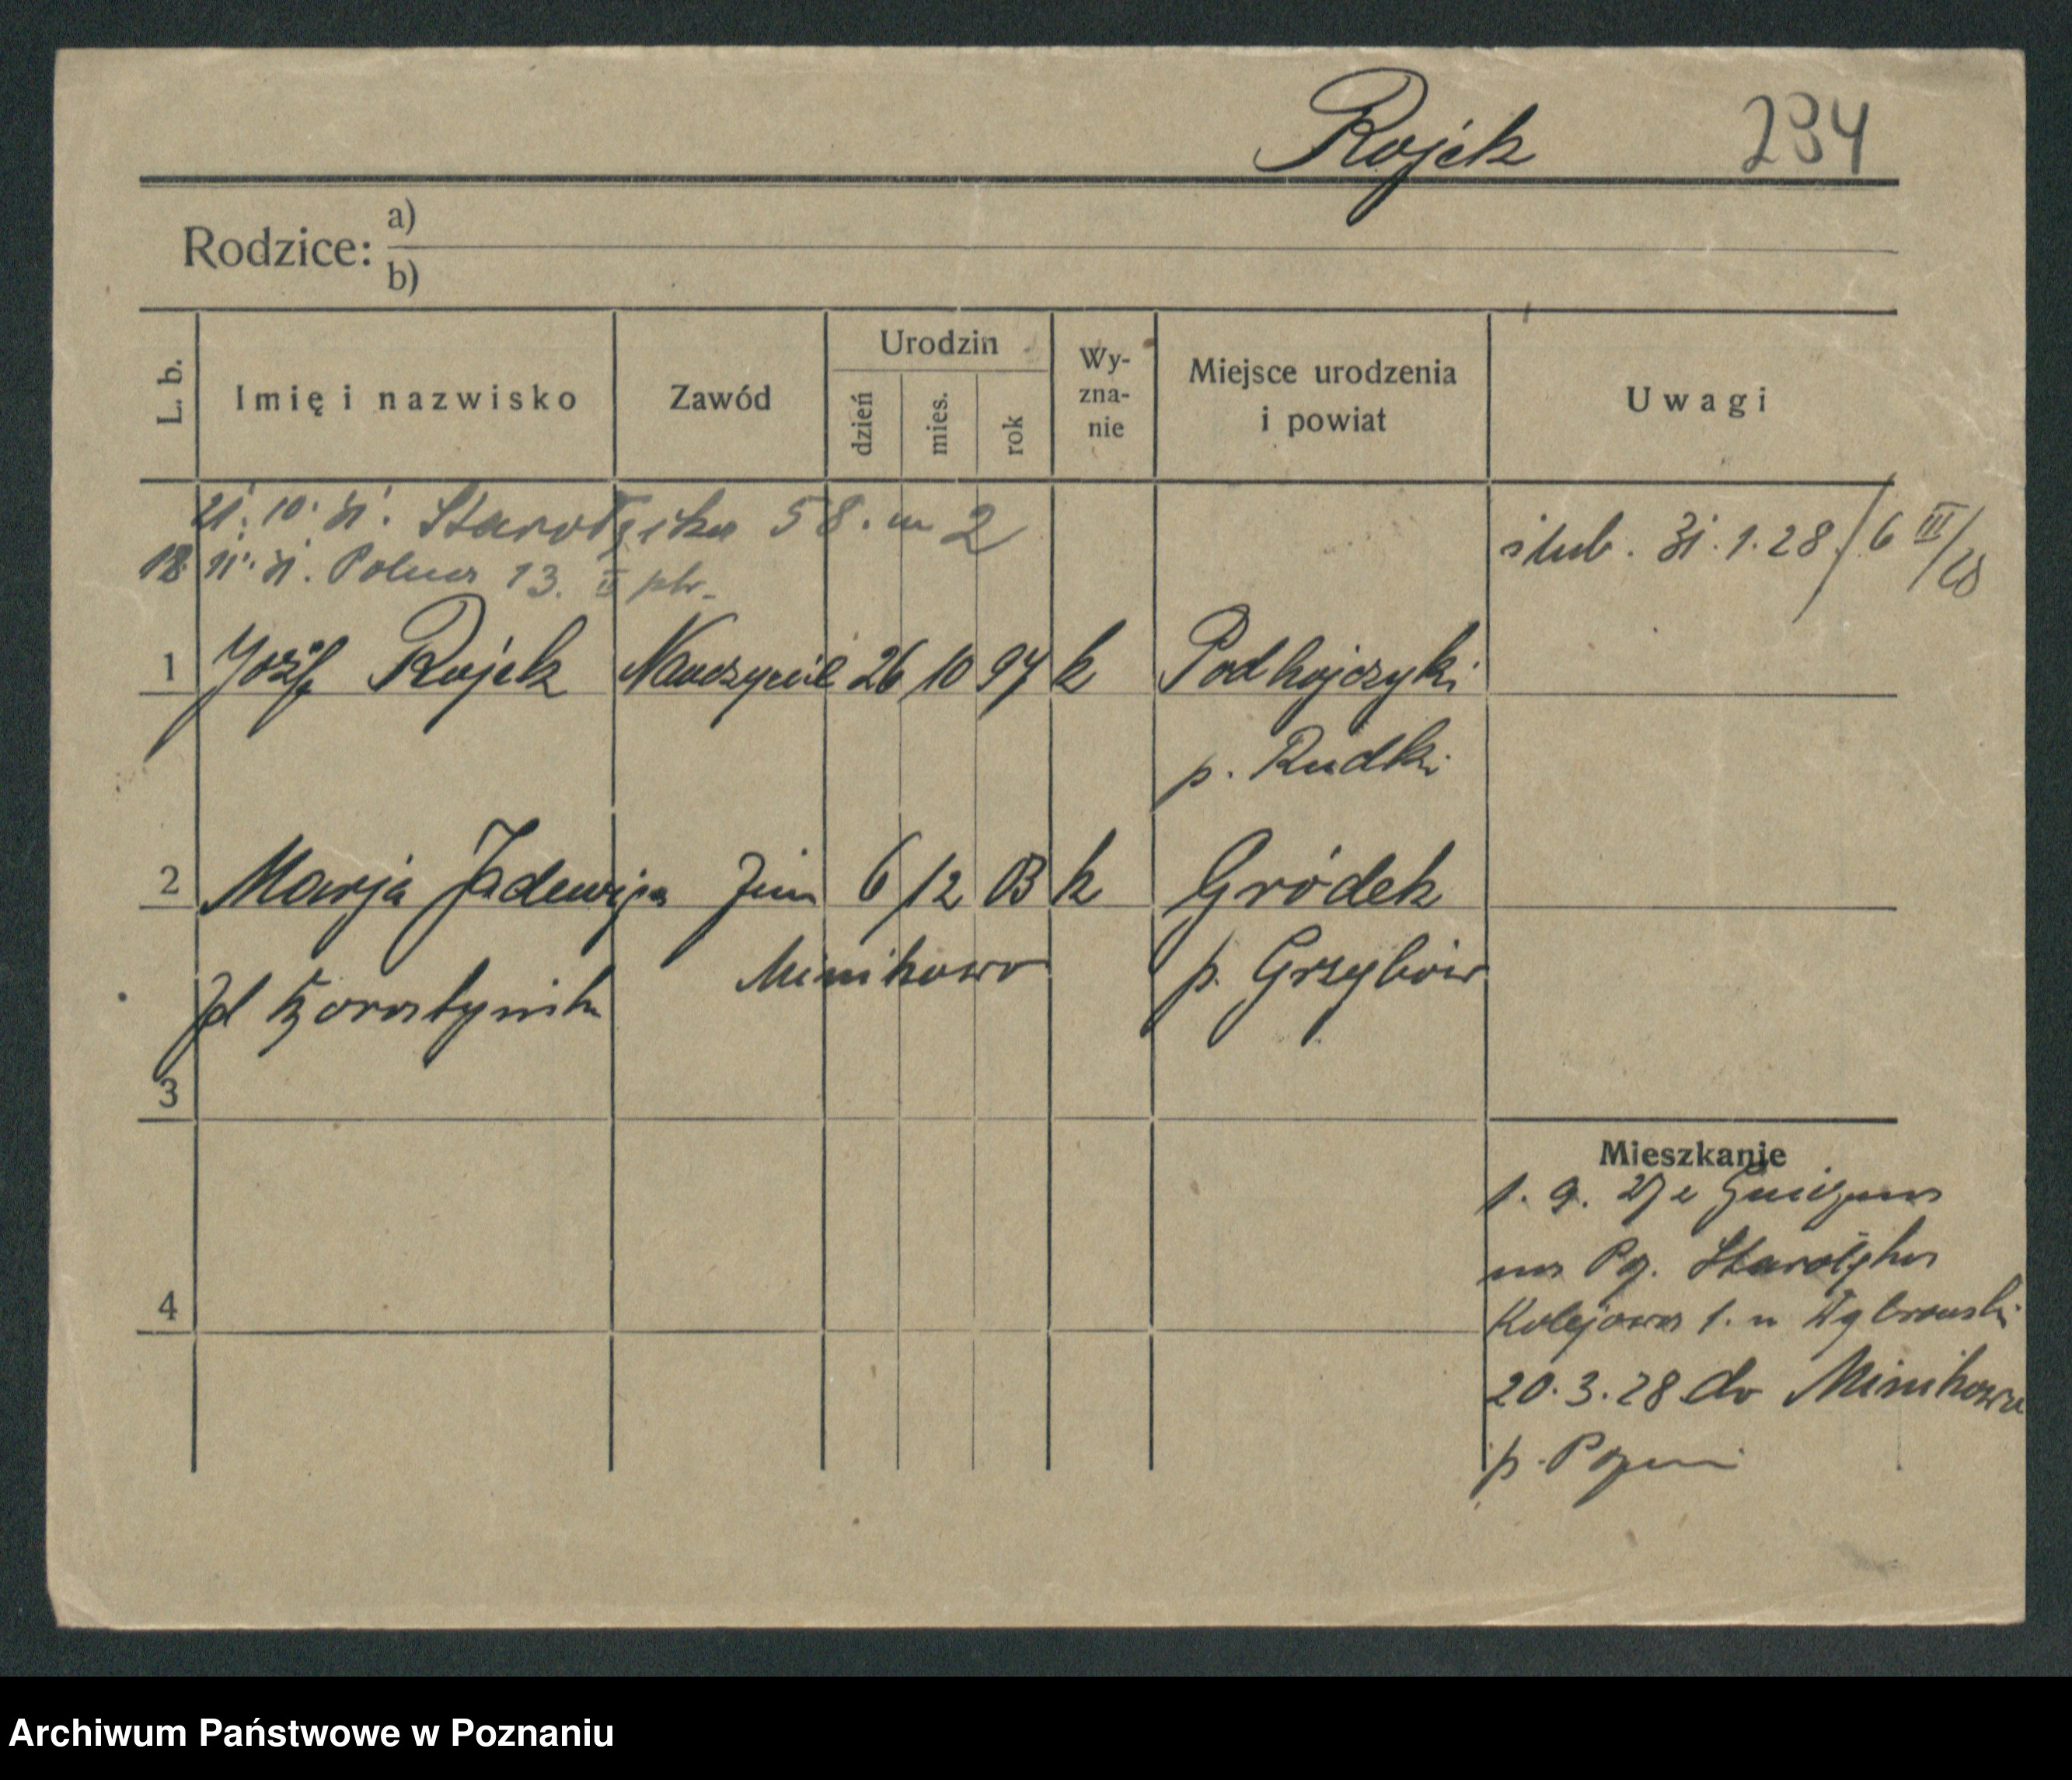 Rojek 234
Rodzice: a)
b)
L. b.
Imię i nazwisko
Zawód
Urodzin
dzień
mies.
rok
Wy-
zna-
nie
Miejsce urodzenia
i powiat
Uwagi
21. 10. 31. Starołęcka 58. m 2
18 11. 31. Polna 13. II ptr.
ślub. 31.1.28 / 6 III/28
1 Józef Rojek Nauczyciel 26 10 97 k Podhajczyki
p. Rudki
2 Marja Jadwiga 6 12 03 k Gródek
Minikowo p. Grzybów
3
Mieszkanie
1. 9. 27 z Gniezna
na Starołęka
Kolejowa 1. u
4
20.3.28 do Minikowa
p. Pozn
Archiwum Państwowe w Poznaniu